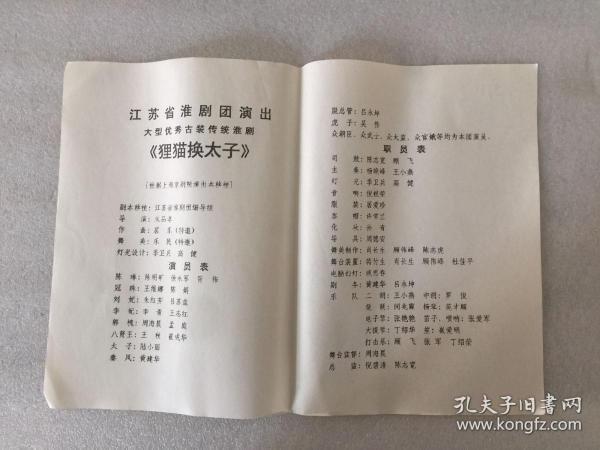 江苏省淮剧团演出
大型优秀古装传统淮剧
《狸猫换太子》
[根据上海京剧院演出本移植]
剧本移植：江苏省淮剧团编导组
导 演：
作 曲： (特邀)
舞 美：乐 民(特邀)
灯光设计：李卫兵 高 健
演 员 表
陈 琳：陈明矿 徐永军
冠 珠：王维娜 陈 娟
刘 妃：朱红芳
李 妃：李 青 王志红
郭 槐：周海晨 孟
八贤王：王 秋 崔成华
太 子：陆小丽
秦 凤：黄建华
殿总管：吕永坤
虎 子：吴 伟
众朝臣、众武士、众太监、众宫娥等均为本团演员。
职 员 表
司 鼓：陈志宽 顾 飞
主 奏：杨晓峰 王小燕
灯 光：李卫兵 高 健
音 响：倪祖荣
服 装：居爱珍
盔 帽：许常兰
化 妆：孙 青
道 具：周德安
舞美制作：肖长生 顾伟峰 陈志虎
舞台装置：蒋竹生 肖长生 顾伟峰 杜佳平
电脑幻灯：戚思春
剧 务：黄建华 吕永坤
乐 队 二胡：王小燕 中胡：罗 俊
琵琶：闵兆南 扬琴：
电子琴：张艳艳 笛子、唢呐：张爱军
大提琴：丁绍华 笙：戴爱明
打击乐：顾 飞 张 军 丁绍荣
舞台监督：周海晨
总 监：倪碧清 陈志宽
孔夫子旧书网
www.kongfz.com